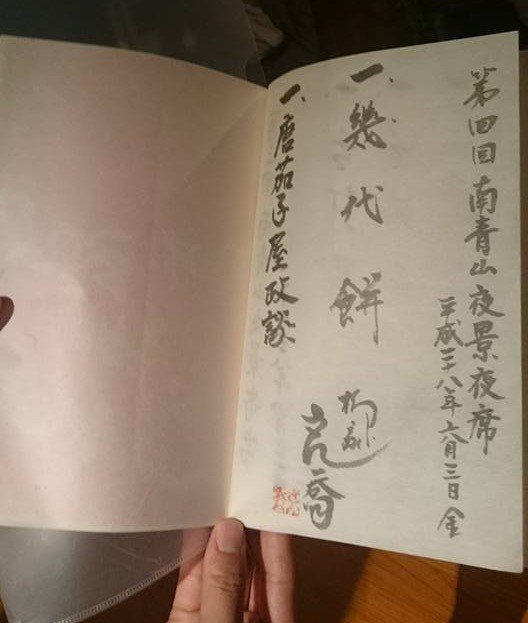 第四回 南青山夜景夜席
平成二十八年六月三日 金
一、幾代餅
一、唐茄子屋政談